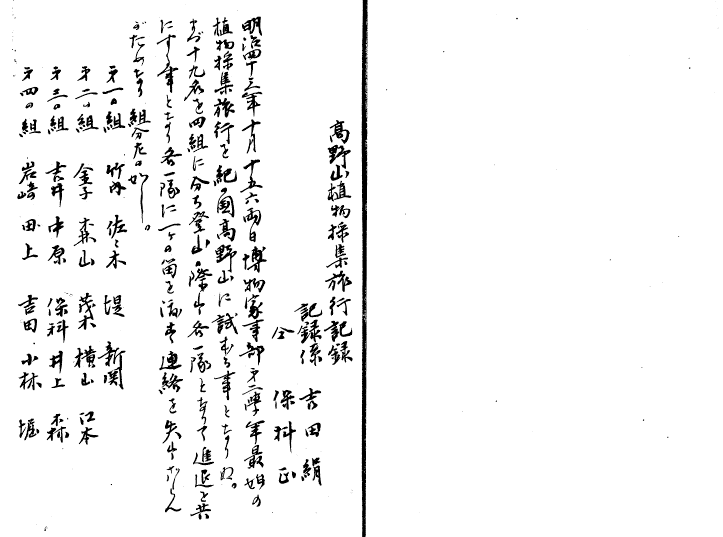 高野山植物採集旅行記録
記録係 吉田絹
仝 保科正
明治四十三年十月十五六両日博物家事部第二學年最始の
植物採集旅行を紀の国高野山に試むる事となりぬ。
まづ十九名を四組に分ち登山の際は各一隊となりて進退を共
にする事となり各一隊に一ヶの笛を渡す連絡を失はざらん
がためなり 組分左の如し。
第一の組 竹内 佐々木 堤 新関
第二の組 金子 森山 茂木 横山 江本
第三の組 吉井 中原 保科 井上 森
第四の組 岩崎 田上 吉田 小林 堀